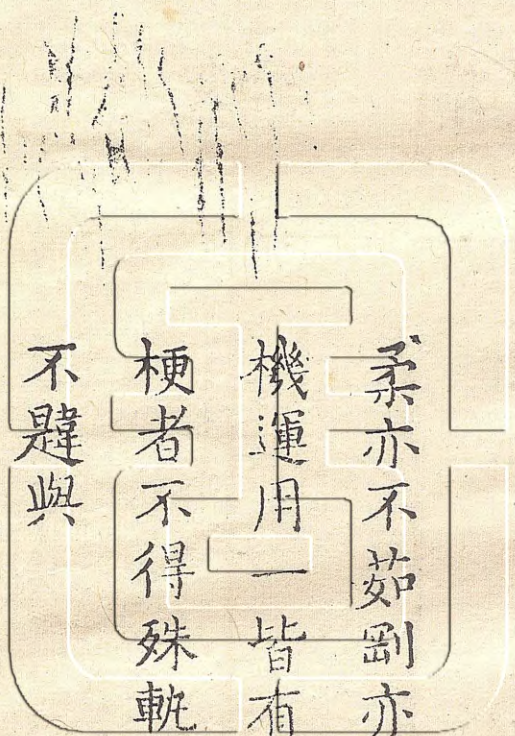 柔亦不茹剛亦
機運用一皆有
梗者不得殊軌
不韙與